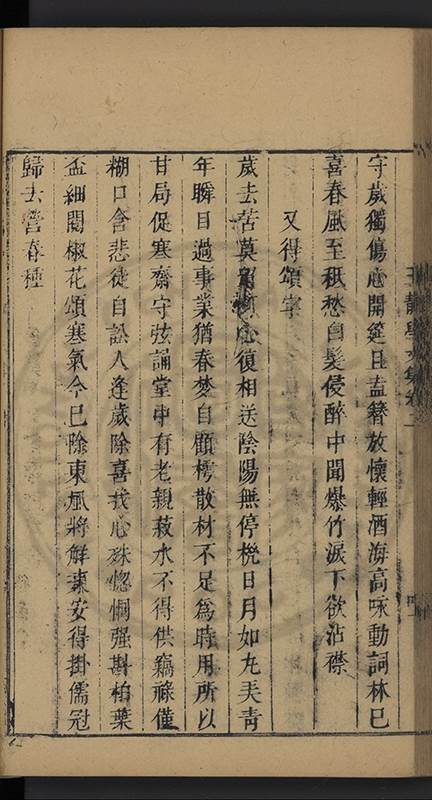 守歲獨傷心開筵且盍簪放懷輕酒海高咏動詞林已
喜春風至秪愁白髮侵醉中聞爆竹淚下欲沾襟
又得頌字
歲去苦莫留心復相送陰陽無停機日月如丸美青
年瞬目過事業猶春夢自顧樗散材不足爲時用所以
甘局促寒齋守弦誦堂中有老親菽水不得供竊祿僅
糊口含悲徒自訟人逢歲除喜我心殊惚恫强斟柏葉
盃細閱椒花頌寒氣今巳除東風將解凍安得掛儒冠
歸去營春種